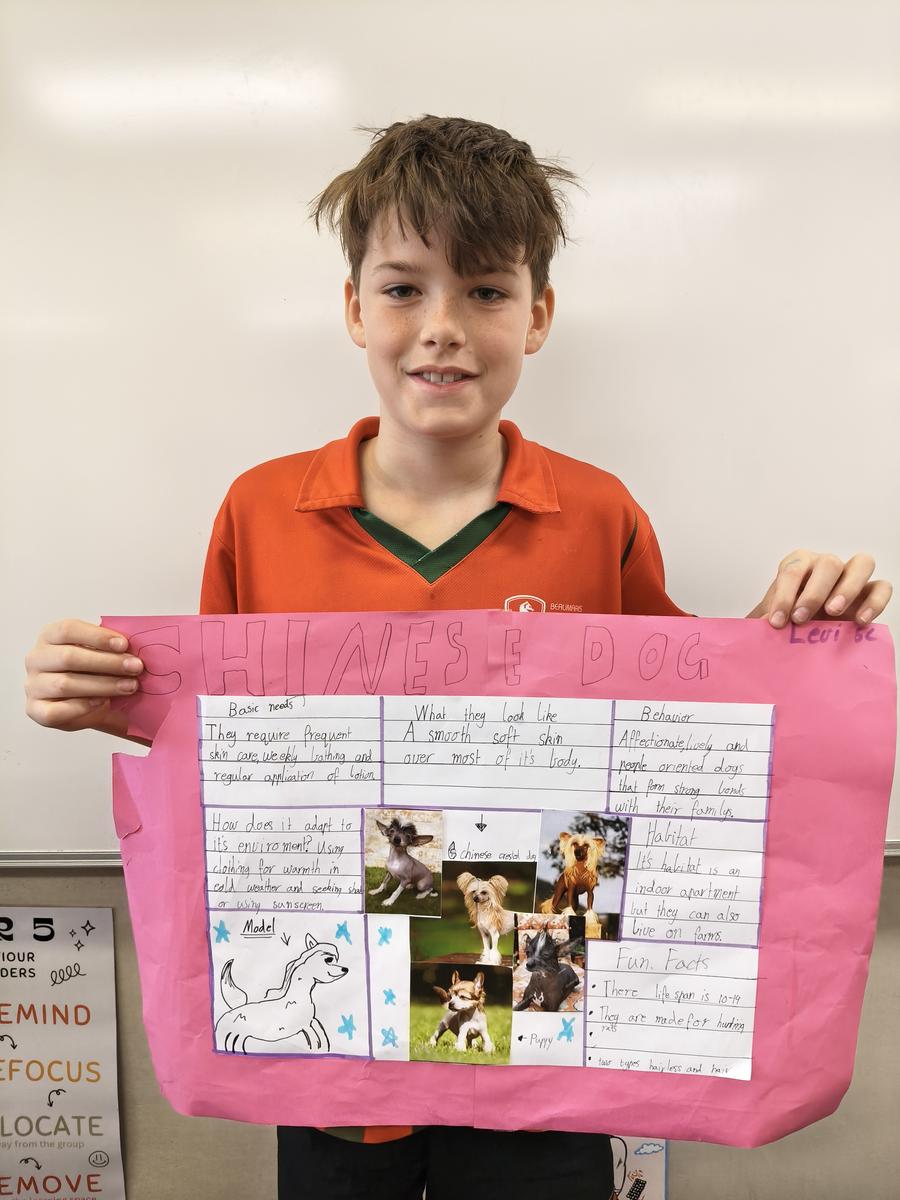 BEAUMARIS
CHINESE DOG
Levi 5c
Basic needs
They require frequent
skin care, weekly bathing and
regular application of lotion
What they look like
A smooth soft skin
over most of it's body.
Behavior
Affectionate, lively and
people oriented dogs
that form strong bonds
with their familys.
How does it adapt to
it's enviroment? Using
claithing for warmth in
cold weather and seeking shad
or using sunscreen
chinese crested dog
Habitat
It's habitat is an
indoor apartment
but they can also
live on farms.
Model
Puppy
Fun. Facts
• There life span is 10-14
• They are made for hunting
rats
• two types hairless and hair
25
IOUR
DERS
EMIND
EFOCUS
LOCATE
way from the group
EMOVE